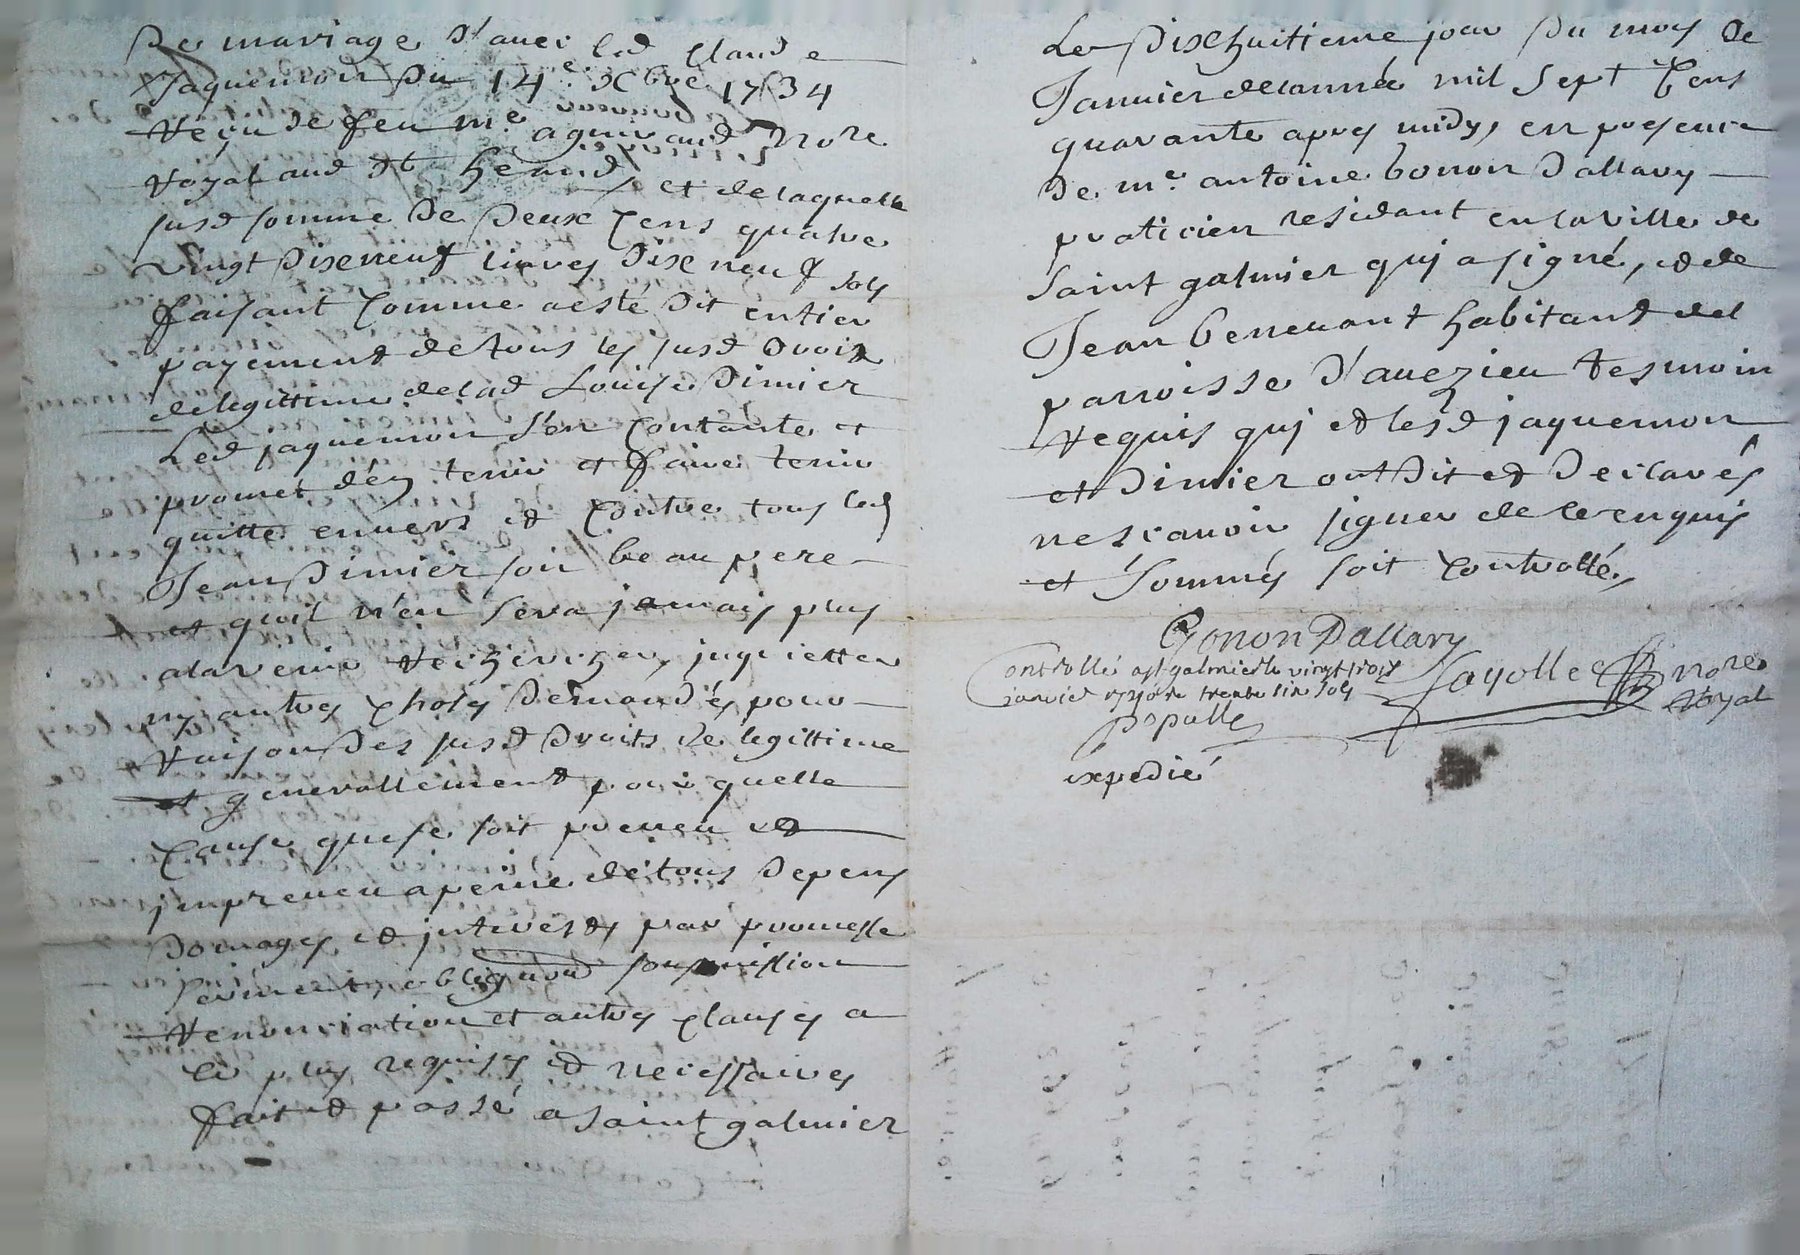 De mariage d'avec led Claude
Jaquemon du 14e Xbre 1734
reçu de feu me aguiraud nore
royal aud St heand, et de laquelle
susd somme de deux cens quatre
vingt dixneuf livres dix neuf sols
faisant comme a esté dit entier
payement de tous les susd droits
de legittime delad Louise dimier
Led jaquemon s'en contante et
promet d'en tenir et faire tenir
quitte envers et contre tous led
Jean Dimier son beau pere
et quoil n'en sera jamais plus
alavenir recherchez, inquietter
ny autres choses demandés pour
raison des susd droits de legittime
et generallement pour quelle
cause que se soit preveu et
impreveu a peine de tous depens
domages et interests par promesse
serment, obligaon soubmission
renonciation et autres clauses a
ce plus requises et necessaires
fait et passé a saint galmier
Le Dixhuitieme jour du mois de
Janvier de lannée mil sept cens
quarante apres midy, en presence
de me antoine Gonon Dallary
praticien residant en la ville de
saint galmier qui a signé, et de
Jean benevant habitant de la
parroisse d'avezieu tesmoin
requis qui et lesd jaquemon
et Dimier ont dit et declarés
ne scavoir signer de ce enquis
et sommés soit controllé,
Gonon Dallary
Controllé a st galmier le vingt trois
janvier 1740 r trente six sols
populle
fayolle nore
Royal
expedié